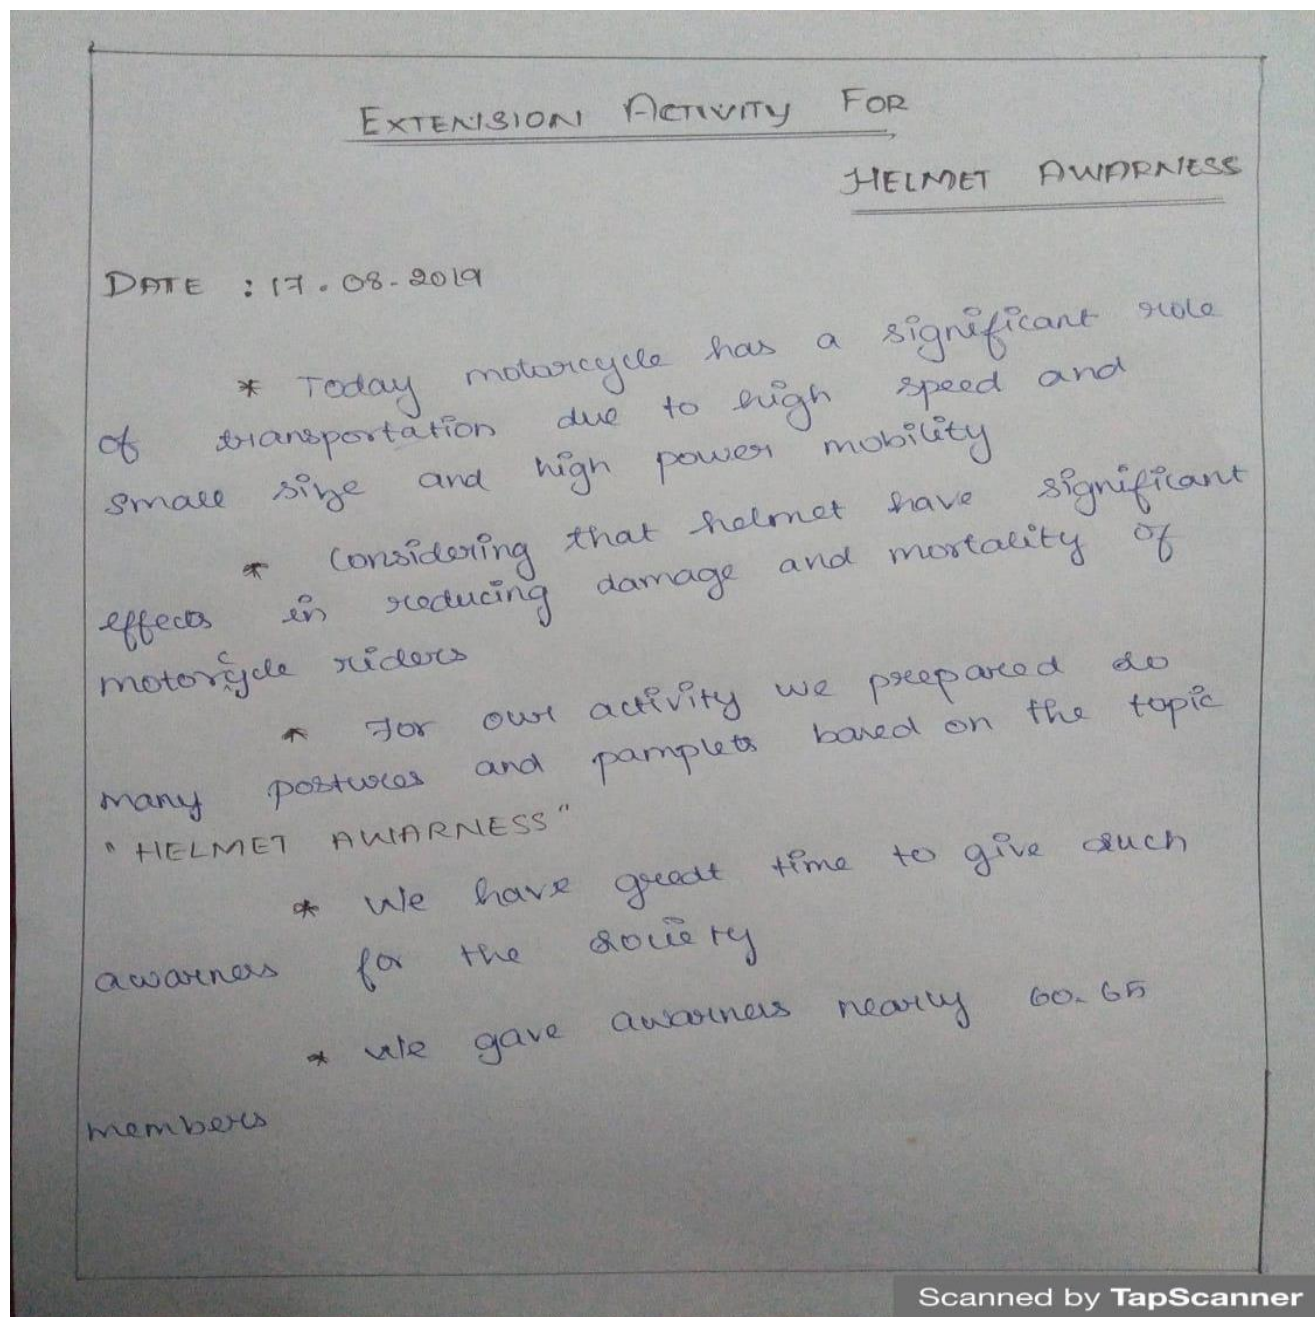 EXTENSION ACTIVITY FOR
HELMET AWARNESS
DATE : 17.08.2019
* Today motorcycle has a significant role
of transportation due to high speed and
small size and high power mobility
* Considering that helmet have significant
effects in reducing damage and mortality of
motorcycle riders
* For our activity we prepared so
many postures and pamplets based on the topic
"HELMET AWARNESS"
* We have great time to give such
awarness for the society
* We gave awarness nearly 60-65
members
Scanned by TapScanner